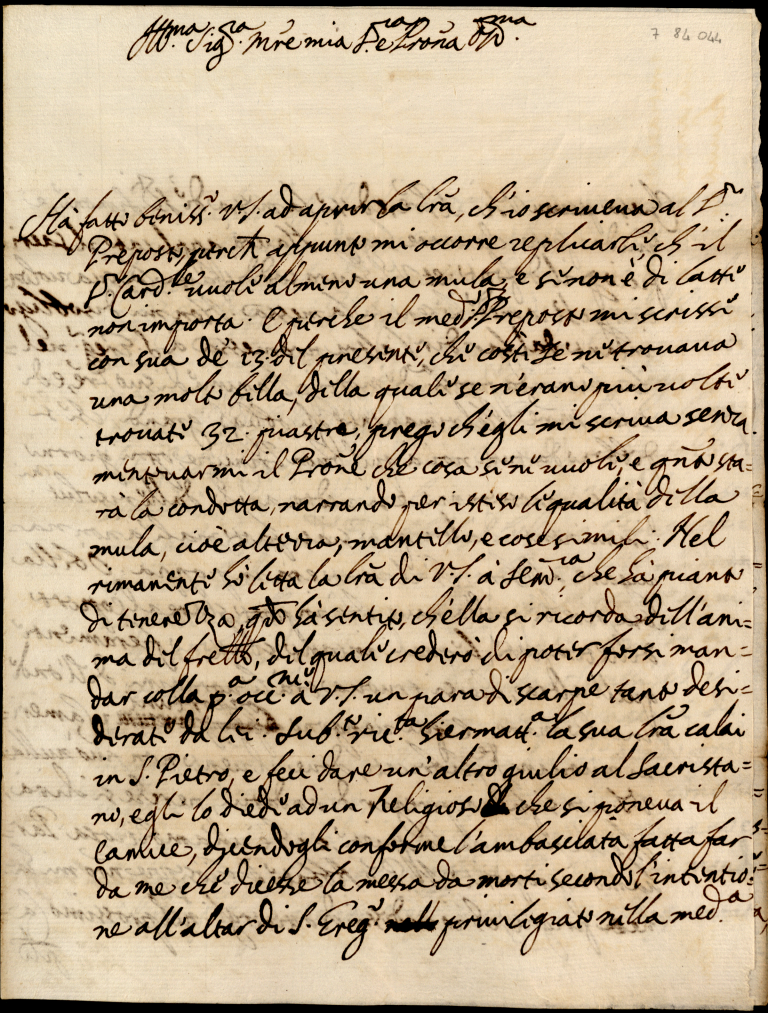 Ill.ma Sig.ra M're mia S.ra e Pro'na Oss.ma
7 84 044
Hà fatto beniss.o V.S. ad aprir la l'ra, ch'io scriueua al S.r
Preposto, perche appunto mi occorre replicarli, ch'il
S.r Card.le uuole almeno una mula, e se non è di latte
non importa. E perche il med.o Preposto mi scrisse
con sua de' 13. del presente, che costì se ne trouaua
una molto bella, della quale se n'erano più uolte
trouate 32. piastre, prego ch'egli mi scriua senza
mentouarmi il Pro'ne che cosa se ne uuole, e qu'to sta=
rà la condotta, narrando per isteso le qualità della
mula, cioè altezza, mantello, e cose simili. Nel
rimanente hò letta la l'ra di V.S. à Sem.ia che hà pianto
di tenerezza, qu'do hà sentito, ch'ella si ricorda dell'ani=
ma del fr'ello, del quale crederò di poter forsi man=
dar colla p.a occ.ne à V.S. un para di scarpe tanto desi=
derate da lei. Sub.o ric.ta hiermatt.a la sua l'ra calai
in S. Pietro, e feci dare un'altro giulio al Sacrista=
no, egli lo diede ad un Religioso che si poneua il
Camice, dicendogli conforme l'ambasciata fatta far
da me che dicesse la messa da morti secondo l'intentio=
ne all'altar di S. Greg.o priuilegiato nella med.a